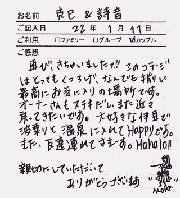 お名前 克己 & 詩音
ご記入日 22年 1月 11日
ご利用 □ファミリー □グループ ☑カップル
ご感想
再び、きちゃいましたァ!! このコテージ
はとってもくつろげ、なんでも揃い
最高にお気に入りの場所です。
オーナーさんもステキだし、また近々
戻ってきたいです。大好きな伊豆で
波乗りと温泉に入れてHappyかな。
また、白濱連れてきますね。Mahalo!!
親切にしていただいて
ありがとうございます